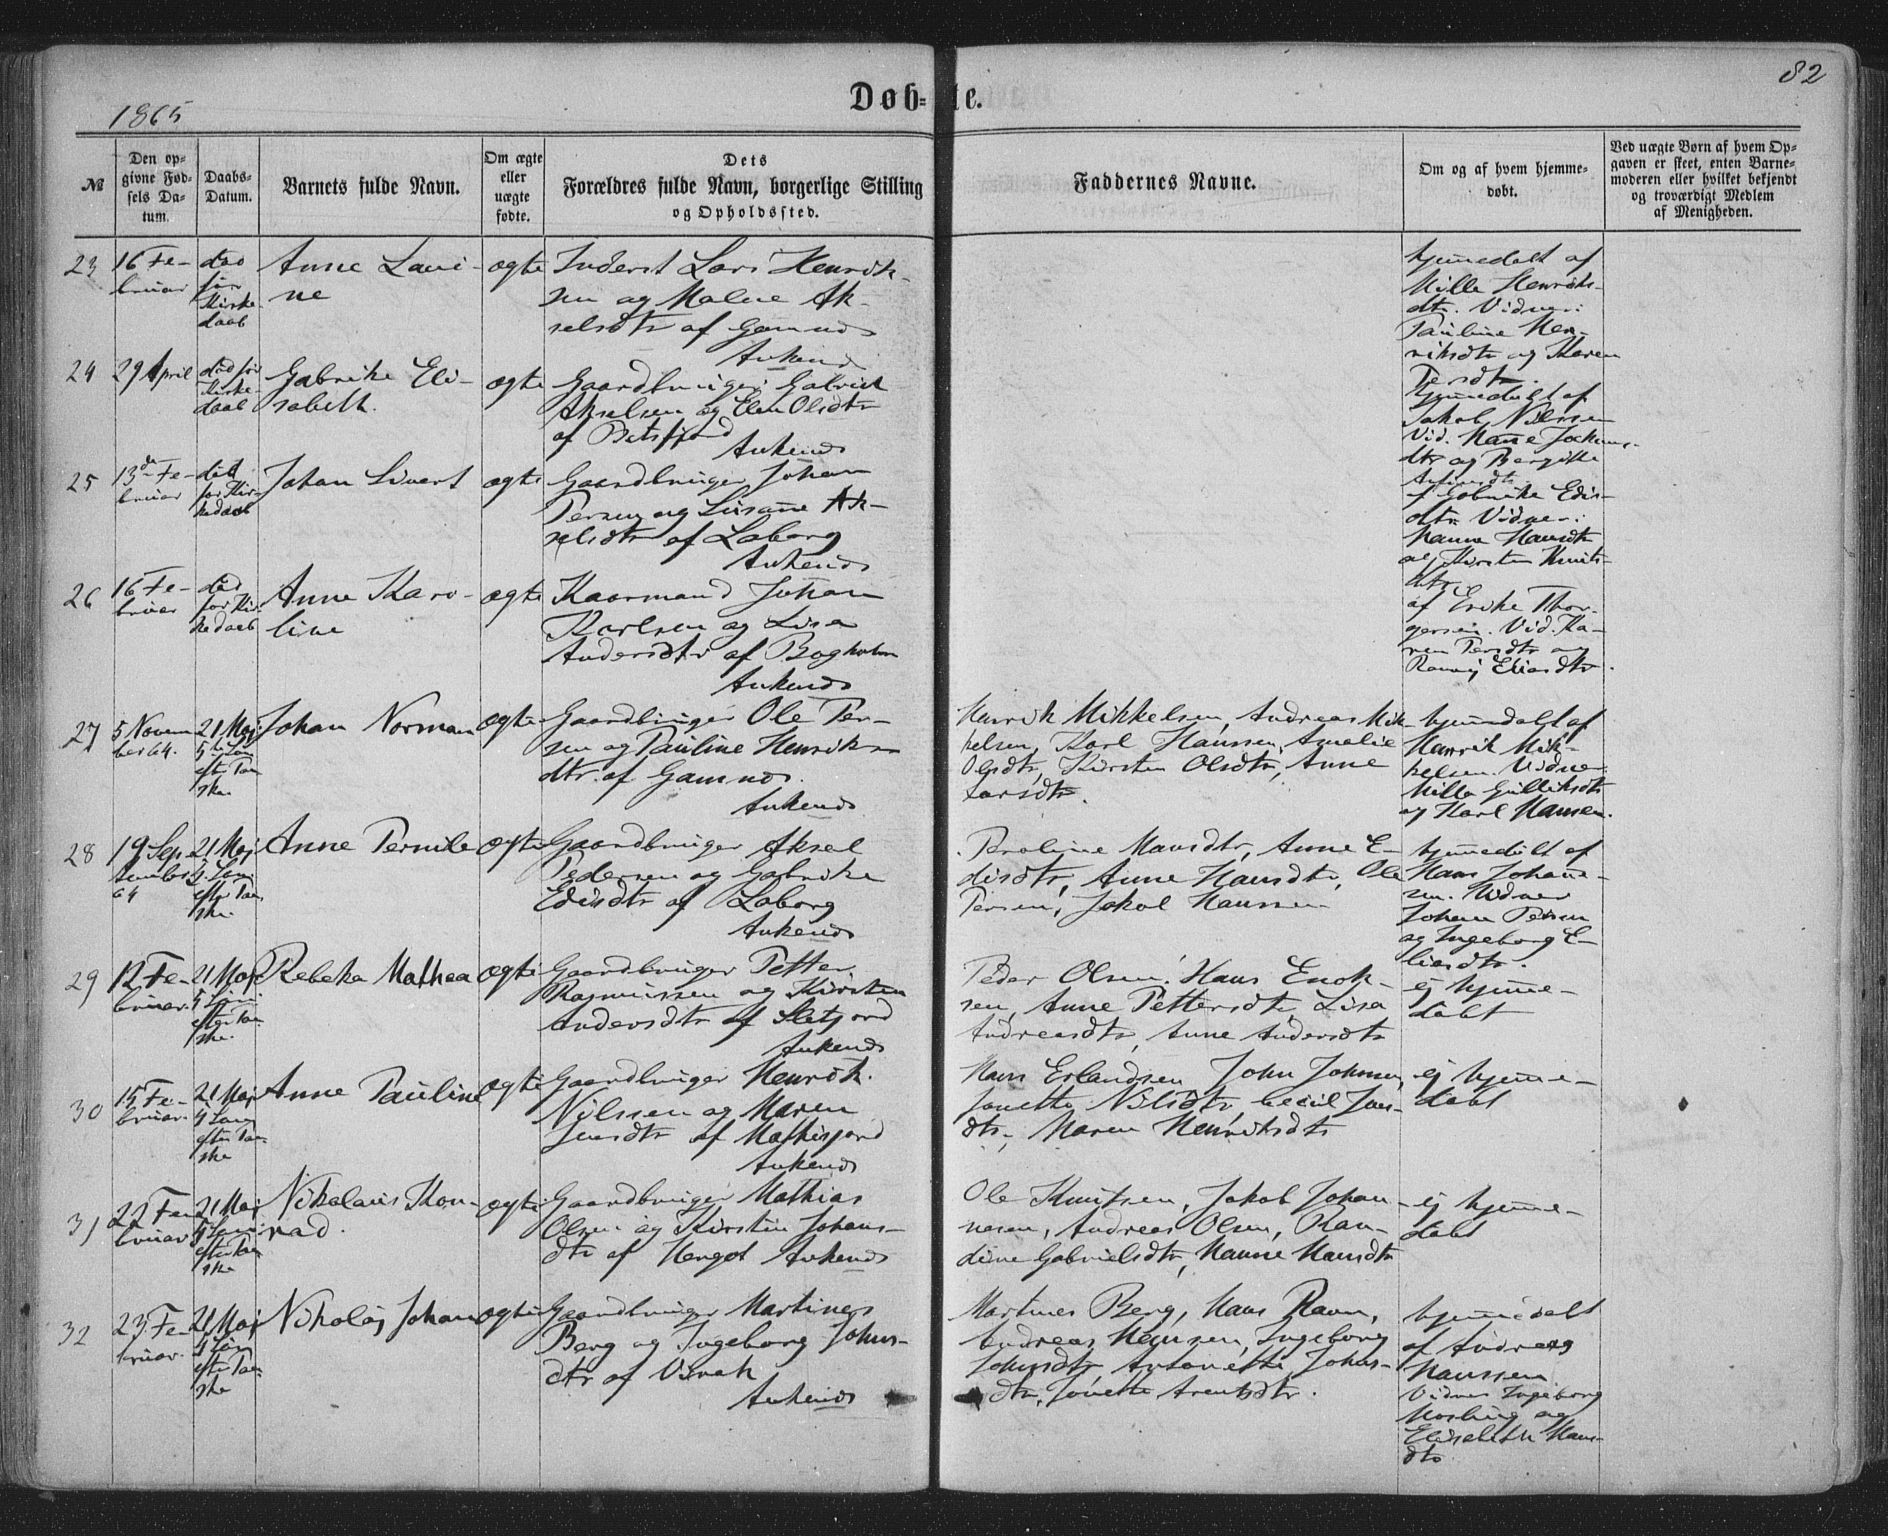 82
1865
Døb-te.
№
Den op-
givne Fød-
sels Da-
tum.
Daabs-
Datum.
Barnets fulde Navn.
Om ægte
eller
uægte
fødte.
Dets
Forældres fulde Navn, borgerlige Stilling
og Opholdssted.
Faddernes Navne.
Om og af hvem hjemme-
døbt.
Ved uægte Børn af hvem Op-
gaven er skeet, enten Barne-
moderen eller hvilket bekjendt
og troværdigt Medlem
af Menigheden.
23
16 Fe-
bruar
død
før
Kirke-
daab
Anne Lavi-
ne
ægte
Inderst Lars Henrik-
sen og Malene Ak-
selsdtr af Gamnes
Ankenes
hjemmedøbt af
Mille Henriks-
dtr. Vidner:
Pauline Hen-
riksdtr og Karen
Persdtr.
24
29 April
død før
Kirke-
daab
Gabrikke Eli-
sabeth.
ægte
Gaardbruger Gabriel
Akselsen og Elen Olsdtr
af
Ankenes
hjemmedøbt af
Jakob Nilssen
Vid. Hanne Jochums-
dtr og Bergitte
25
13de Fe-
bruar
død
før Kir-
kedaab
Johan Sivert
ægte
Gaardbruger Johan
Persen og Susanne Ak-
selsdtr af Laberg
Ankenes
af Gabrikke Edis-
dtr. Vidner:
Hanna Hansdtr
og Kirsten Knuts-
dtr
26
16 Fe-
bruar
død
før Kir-
kedaab
Anne Karo-
line
ægte
Kaarmand Johan
Karlsen og Lisa
Andersdtr af Bogholm
Ankenes
af Erike Thor-
gersen. Vid. Ka-
ren Persdtr og
Eliasdtr.
27
5 Novem
ber 64.
21 Maj
5te Søn
efter Paa
ske.
Johan Norman
ægte
Gaardbruger Ole Per-
sen og Pauline Henriks-
dtr. af Gamnes.
Ankenes
Henrik Mikkelsen, Andreas Mik-
kelsen, Karl Hanssen, Amalie
Olsdtr, Kirsten Olsdtr, Anne
Larsdtr.
hjemmedøbt af
Henrik Mik-
kelsen. Vidner
Milla Gulliksdtr
og Karl Hansen.
28
19 Sep-
tember
64
21 Maj
5 Søn
efter Paa
ske.
Anne Pernille
ægte
Gaardbruger Aksel
Pedersen og Gabrikke
Edisdtr af Laberg
Ankenes
Hansdtr, Anne E-
disdtr, Anne Hansdtr, Ole
Persen, Jakob Hanssen
hjemmedøbt af
Hans Johane-
sen. Vidner
Johan Persen
og Ingeborg E-
liasdtr.
29
12 Fe-
bruar.
21 Maj
5 Søn
efter Paa-
ske.
Rebeka Mathea
ægte
Gaardbruger Petter
Rasmussen og Kirsten
Andersdtr af Sletjord
Ankenes
Peder Olsen, Hans Enok-
sen, Anne Pettersdtr, Lisa
Andreasdtr, Anne Andersdtr
ej hjemme-
døbt
30
15 Fe-
bruar.
21 Maj
5 Søn
efter Paa-
ske
Anne Pauline
ægte
Gaardbruger Henrik
Nilssen og Maren
Jensdtr af Mattisjord
Ankenes
Hans Erlandsen, John Johnsen,
Jonette Nilsdtr, Cecil Jens-
dtr, Maren Henriksdtr
ej hjemme-
døbt
31
22 Fe-
bruar
21 Maj
5 Søn
efter Paa
ske
Nikolaus Kon-
rad.
ægte
Gaardbruger Mathias
Olsen og Kirstin Johans-
dtr af Hergot Ankenes
Ole Knutsen, Jakob Johan-
nesen, Andreas Olsen, Ran-
dine Gabrielsdtr, Hanne Hansdtr
ej hjemme-
døbt
32
23 Fe-
bruar.
21 Maj
5 Søn
efter Paa-
ske
Nikolaj Johan
ægte
Gaardbruger Martines
Berg og Ingeborg Johns-
dtr af Virak
Ankenes
Martines Berg, Hans Ravn,
Andreas Hanssen, Ingeborg
Johnsdtr, Antonette Johns-
dtr, Jonette Arentsdtr.
hjemmedøbt
af Andreas
Hanssen
Vidner Ingeborg
og
Elisabeth Hans-
dtr